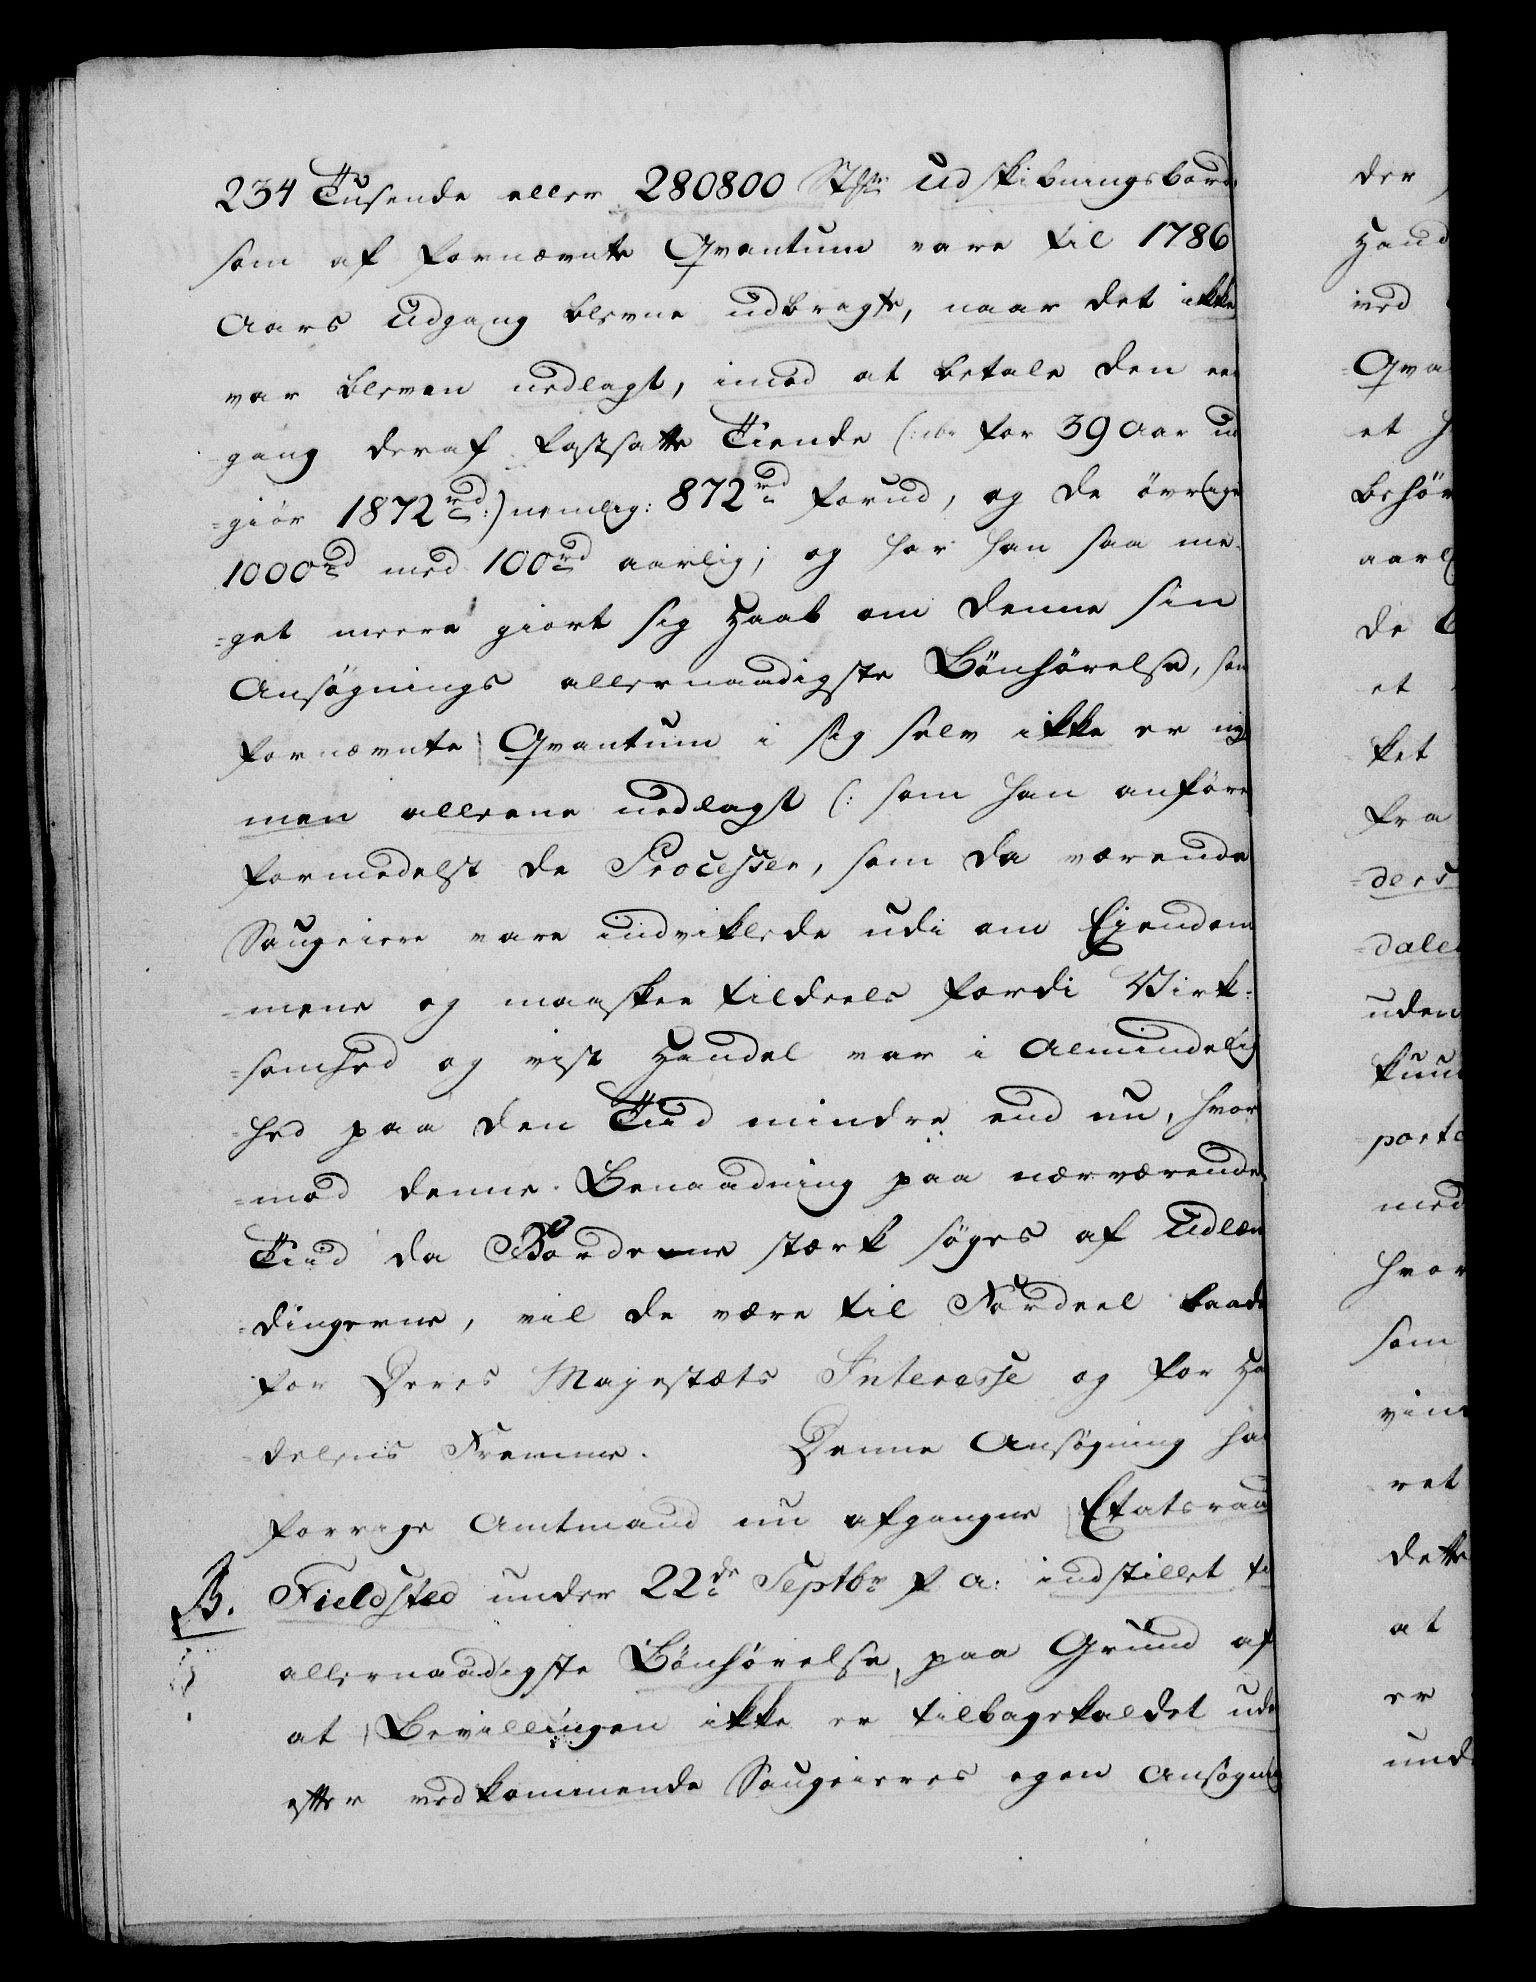 234 Tusende eller 280800 Udskibningsbord
som af fornævnte Qvantum vare til 1786
Aars Udgang blevne udbragte, naar det ikke
var bleven nedlagt, imod at betale den een
gang deraf fastsatte Tiende (: for 39 Aar ud
=giör 1872 rd:) nemlig: 872 rd forud, og de övrige
1000 rd med 100 rd aarlig; og har han saa me-
=get meere giort sig Haab om denne sin
Ansögnings allernaadigste Bönhörelse, som
fornævnte Qvantum i sig selv ikke er nyt
men alleene nedlagt (: som han anföre
formedelst de Processer, som da værende
Saugeiere vare indviklede udi om Ejendom
=mene og maaskee tildeels fordi Virk=
=somhed og vist Handel var i Almindelig
=hed paa den Tiid mindre end nu, hvor
=mod denne Benaadning paa nærværende
Tiid da Bordene stærk söges af Udlæn
=dingerne, vil de være til Fordeel baade
for Deres Majestæts Interesse og for Ha
delens Fremme. Denne Ansögning ha
forrige Amtmand nu afgangne Etatsraad
B. Fieldsted under 22de Septbr f. A. indstillet til
allernaadigste Bönhörelse, paa Grund af
at Bevillingen ikke er tilbagekaldet uden
efter vedkommende Saugeieres egen Ansögning
der
Hand
ved
=Qva
et
behör
aarl
de
et
ket
fra
=ders
=dale
uden
kuun
port
med
hvor
som
vin
ret
dette
at
er
und